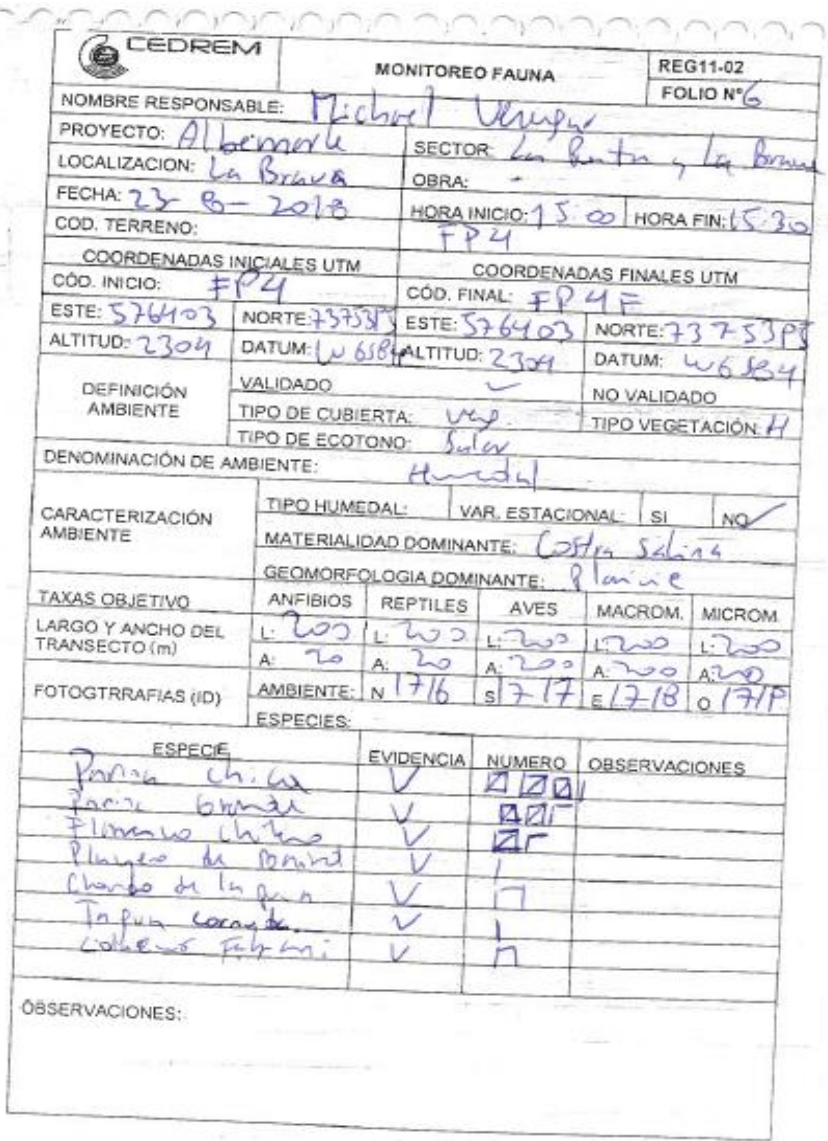 CEDREM
MONITOREO FAUNA
REG11-02
FOLIO N° 6
NOMBRE RESPONSABLE: Michael
PROYECTO: Albemarle
SECTOR: La Punta y La Brava
LOCALIZACION: La Brava
OBRA: -
FECHA: 23-8-2018
HORA INICIO: 15:00 HORA FIN: 15:30
COD. TERRENO: FP4
COORDENADAS INICIALES UTM
COORDENADAS FINALES UTM
CÓD. INICIO: FP4
CÓD. FINAL: FP4F
ESTE: 576403 NORTE: ESTE: 576403 NORTE:
ALTITUD: 2304 DATUM: WGS84 ALTITUD: 2304 DATUM: WGS84
DEFINICIÓN AMBIENTE
VALIDADO ✓ NO VALIDADO
TIPO DE CUBIERTA: Veg. TIPO VEGETACIÓN: H
TIPO DE ECOTONO: Salar
DENOMINACIÓN DE AMBIENTE: Humedal
CARACTERIZACIÓN AMBIENTE
TIPO HUMEDAL: VAR. ESTACIONAL: SI NO ✓
MATERIALIDAD DOMINANTE: Costra Salina
GEOMORFOLOGIA DOMINANTE: Planicie
TAXAS OBJETIVO ANFIBIOS REPTILES AVES MACROM. MICROM.
LARGO Y ANCHO DEL TRANSECTO (m)
L: 200 L: 200 L: 200 L: 200 L: 200
A: 20 A: 20 A: 200 A: 200 A:
FOTOGTRRAFIAS (ID)
AMBIENTE: N 1716 S 1717 E 1718 O
ESPECIES:
ESPECIE EVIDENCIA NUMERO OBSERVACIONES
Parina Chica ✓
Parina Grande ✓
Flamenco Chileno ✓
Playero de Baird ✓
Chorlo de la puna ✓
✓
✓
OBSERVACIONES: